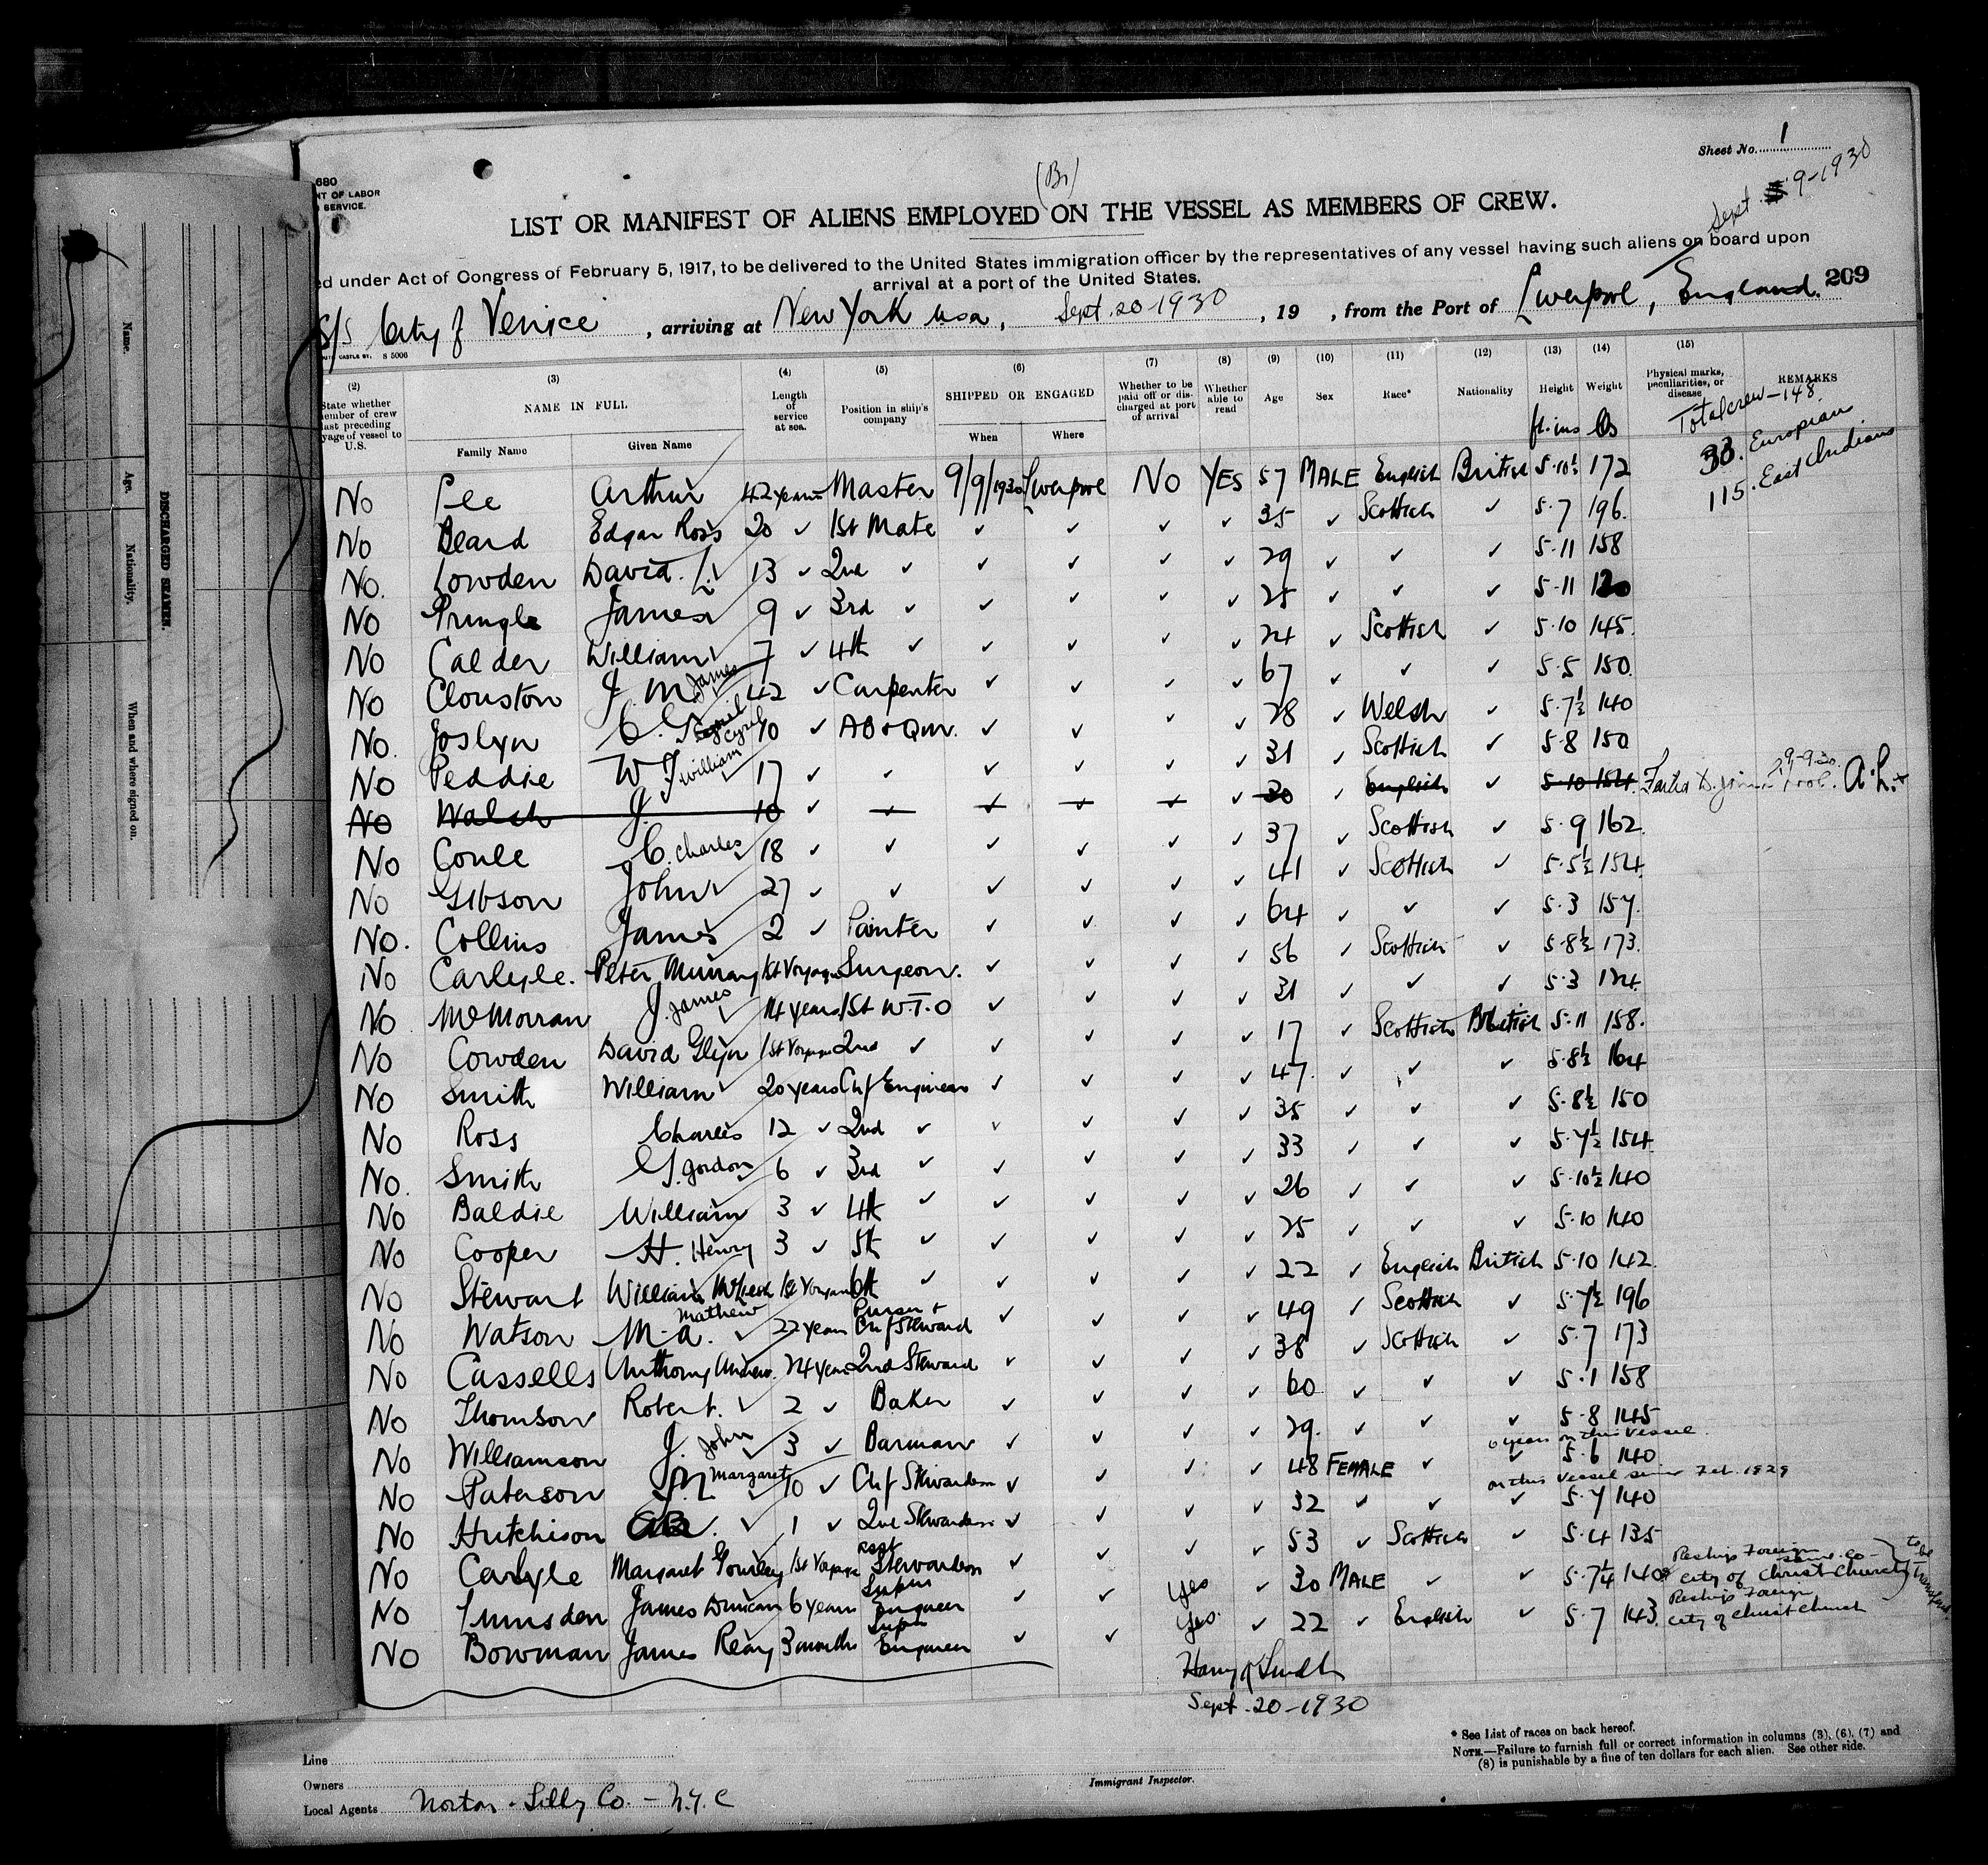 Sheet No. 1
(Br)
Sept. 9-1930
680
NT OF LABOR
SERVICE.
LIST OR MANIFEST OF ALIENS EMPLOYED ON THE VESSEL AS MEMBERS OF CREW.
ed under Act of Congress of February 5, 1917, to be delivered to the United States immigration officer by the representatives of any vessel having such aliens on board upon
arrival at a port of the United States.
209
S/S City of Venice, arriving at New York usa, Sept. 20 1930, 19 , from the Port of Liverpool, England.
(2) (3) (4) (5) (6) (7) (8) (9) (10) (11) (12) (13) (14) (15)
State whether member of crew last preceding voyage of vessel to U.S. NAME IN FULL Length of service at sea. Position in ship's company SHIPPED OR ENGAGED Whether to be paid off or discharged at port of arrival Whether able to read Age Sex Race* Nationality Height Weight Physical marks, peculiarities, or disease REMARKS
Family Name Given Name When Where ft. ins lbs
Total crew - 148.
33. European
115. East Indians
No Lee Arthur 42 years Master 9/9/1930 Liverpool No YES 57 MALE English British 5·10½ 172
No Beard Edgar Ross 20 ✓ 1st Mate ✓ ✓ ✓ ✓ 35 ✓ Scottish ✓ 5·7 196.
No. Lowden David. L. 13 ✓ 2nd ✓ ✓ ✓ ✓ ✓ 29 ✓ ✓ ✓ 5·11 158
No Pringle James 9 ✓ 3rd ✓ ✓ ✓ ✓ ✓ 25 ✓ ✓ ✓ 5·11
No Calder William 7 ✓ 4th ✓ ✓ ✓ ✓ ✓ 24 ✓ Scottish ✓ 5·10 145.
No Clouston J. M. James 42 ✓ Carpenter ✓ ✓ ✓ ✓ 67 ✓ ✓ ✓ 5·5 150.
No. Joslyn C. G. Cyril 10 ✓ AB & QM. ✓ ✓ ✓ ✓ 28 ✓ Welsh ✓ 5·7½ 140
No Peddie W J William 17 ✓ ✓ ✓ ✓ ✓ ✓ 31 ✓ Scottish ✓ 5·8 150
No Walsh J. 10 ✓ ✓ ✓ ✓ ✓ ✓ 30 ✓ English ✓ 5·10 154. Failed to join 9-9-30. A.L.
No Coull C. Charles 18 ✓ ✓ ✓ ✓ ✓ ✓ 37 ✓ Scottish ✓ 5·9 162.
No Gibson John 27 ✓ ✓ ✓ ✓ ✓ ✓ 41 ✓ Scottish ✓ 5·5½ 154.
No. Collins James 2 ✓ Painter ✓ ✓ ✓ ✓ 64 ✓ ✓ ✓ 5·3 157.
No Carlyle. Peter Murray 1st Voyage Surgeon. ✓ ✓ ✓ ✓ 56 ✓ Scottish ✓ 5·8½ 173.
No McMorran J. James 14 years 1st W.T.O ✓ ✓ ✓ ✓ 31 ✓ ✓ ✓ 5·3 124.
No Cowden David Glyn 1st Voyage 2nd ✓ ✓ ✓ ✓ ✓ 17 ✓ Scottish British 5·11 158.
No Smith William 20 years Chf Engineer ✓ ✓ ✓ ✓ 47. ✓ ✓ ✓ 5·8½ 164
No Ross Charles 12 ✓ 2nd ✓ ✓ ✓ ✓ ✓ 35 ✓ ✓ ✓ 5·8½ 150
No. Smith G. Gordon 6 ✓ 3rd ✓ ✓ ✓ ✓ ✓ 33 ✓ ✓ ✓ 5·7½ 154.
No Baldie William 3 ✓ 4th ✓ ✓ ✓ ✓ ✓ 26 ✓ ✓ ✓ 5·10½ 140
No Cooper H. Henry 3 ✓ 5th ✓ ✓ ✓ ✓ ✓ 25 ✓ ✓ ✓ 5·10 140
No Stewart William 1st Voyage 6th ✓ ✓ ✓ ✓ ✓ 22 ✓ English British 5·10 142.
No Watson M-A. Mathew 22 years Purser & Chf Steward ✓ ✓ ✓ ✓ 49 ✓ Scottish ✓ 5·7½ 196
No Cassells Anthony Andrew. 24 years 2nd Steward ✓ ✓ ✓ ✓ 38 ✓ Scottish ✓ 5·7 173
No Thomson Robert. 2 ✓ Baker ✓ ✓ ✓ ✓ 60 ✓ ✓ ✓ 5·1 158
No Williamson J. John 3 ✓ Barman ✓ ✓ ✓ ✓ 29. ✓ ✓ ✓ 5·8 145
6 years on this vessel.
No Paterson M Margaret 10 ✓ Chf Stewardess ✓ ✓ ✓ ✓ 48 FEMALE ✓ ✓ 5·6 140
on this vessel since Feb. 1929
No Hutchison ✓ 1 ✓ 2nd Stewardess ✓ ✓ ✓ ✓ 32 ✓ ✓ ✓ 5·7 140
No Carlyle Margaret Gourley 1st Voyage Asst Stewardess ✓ ✓ ✓ ✓ 53 ✓ Scottish ✓ 5·4 135
No Lumsden James Duncan 6 years Supes Engineer ✓ ✓ Yes ✓ 30 MALE ✓ ✓ 5·7¼ 140 Reship Foreign same co- City of Christchurch
No Bowman James Reay 3 months Supes Engineer ✓ ✓ Yes. ✓ 22 ✓ English ✓ 5·7 143. Reship Foreign City of Christchurch
to be transferred
Harry Smith
Sept. 20-1930
Line
Owners
Local Agents Norton - Lilly Co. - N.Y.C
Immigrant Inspector.
* See List of races on back hereof.
NOTE.—Failure to furnish full or correct information in columns (3), (6), (7) and
(8) is punishable by a fine of ten dollars for each alien. See other side.
DISCHARGED SEAMEN.
Name.
Age.
Nationality.
When and where signed on.